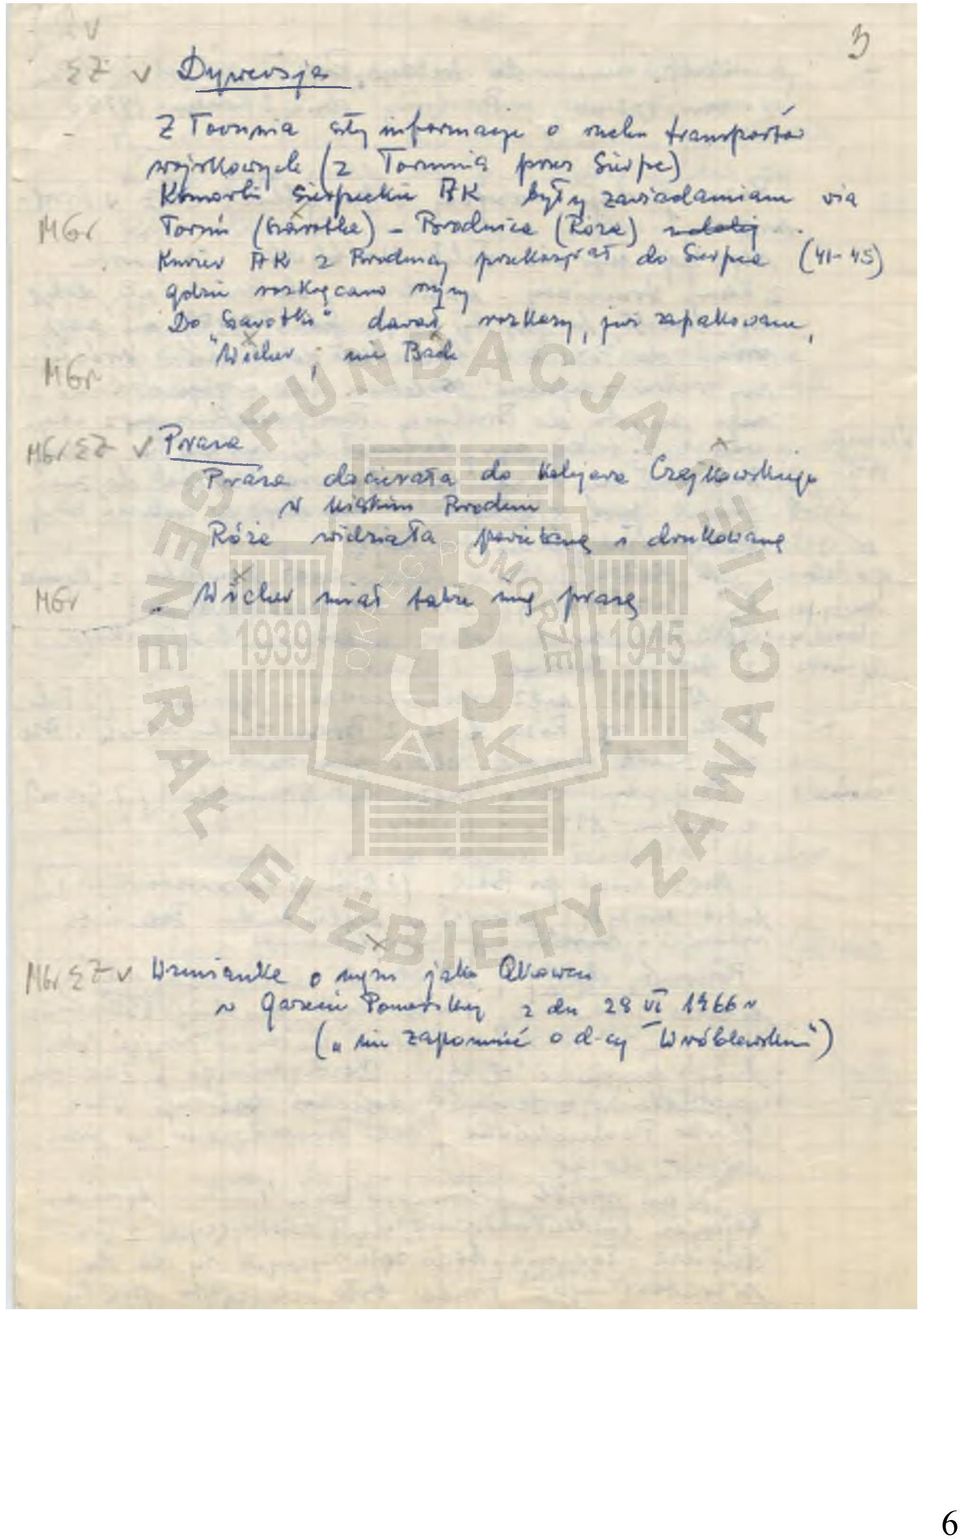 3
v
EZ v Dywersja
- Z Torunia szły informacje o ruchu transportów
wojskowych (z Torunia przez Sierpc)
Komórki Sierpeckie AK były zawiadamiane via
MGr Toruń (Szarotka) – Brodnica (Róża)
Kurier AK z Brodnicy przekazywał do Sierpca (41-45)
gdzie rozkręcano szyny
Do "Szarotki" dawał rozkazy, już zapakowane,
MGr "Wicher", nie Bach
MGr EZ v Prasa
Prasa docierała do kolejarza Czajkowskiego
w Brodnicy
Róża widziała powielaną i drukowaną
MGr „ Wicher miał także inną prasę
MGr EZ v Wzmiankę o mężu jako Akowcu
w Gazecie Pomorskiej z dn 28 VI 1966 r
(„nie zapomnieć o d-cy "Wróblewskim")
FUNDACJA GENERAŁ ELŻBIETY ZAWACKIEJ
OKRĘG POMORZE
1939 1945
AK
6